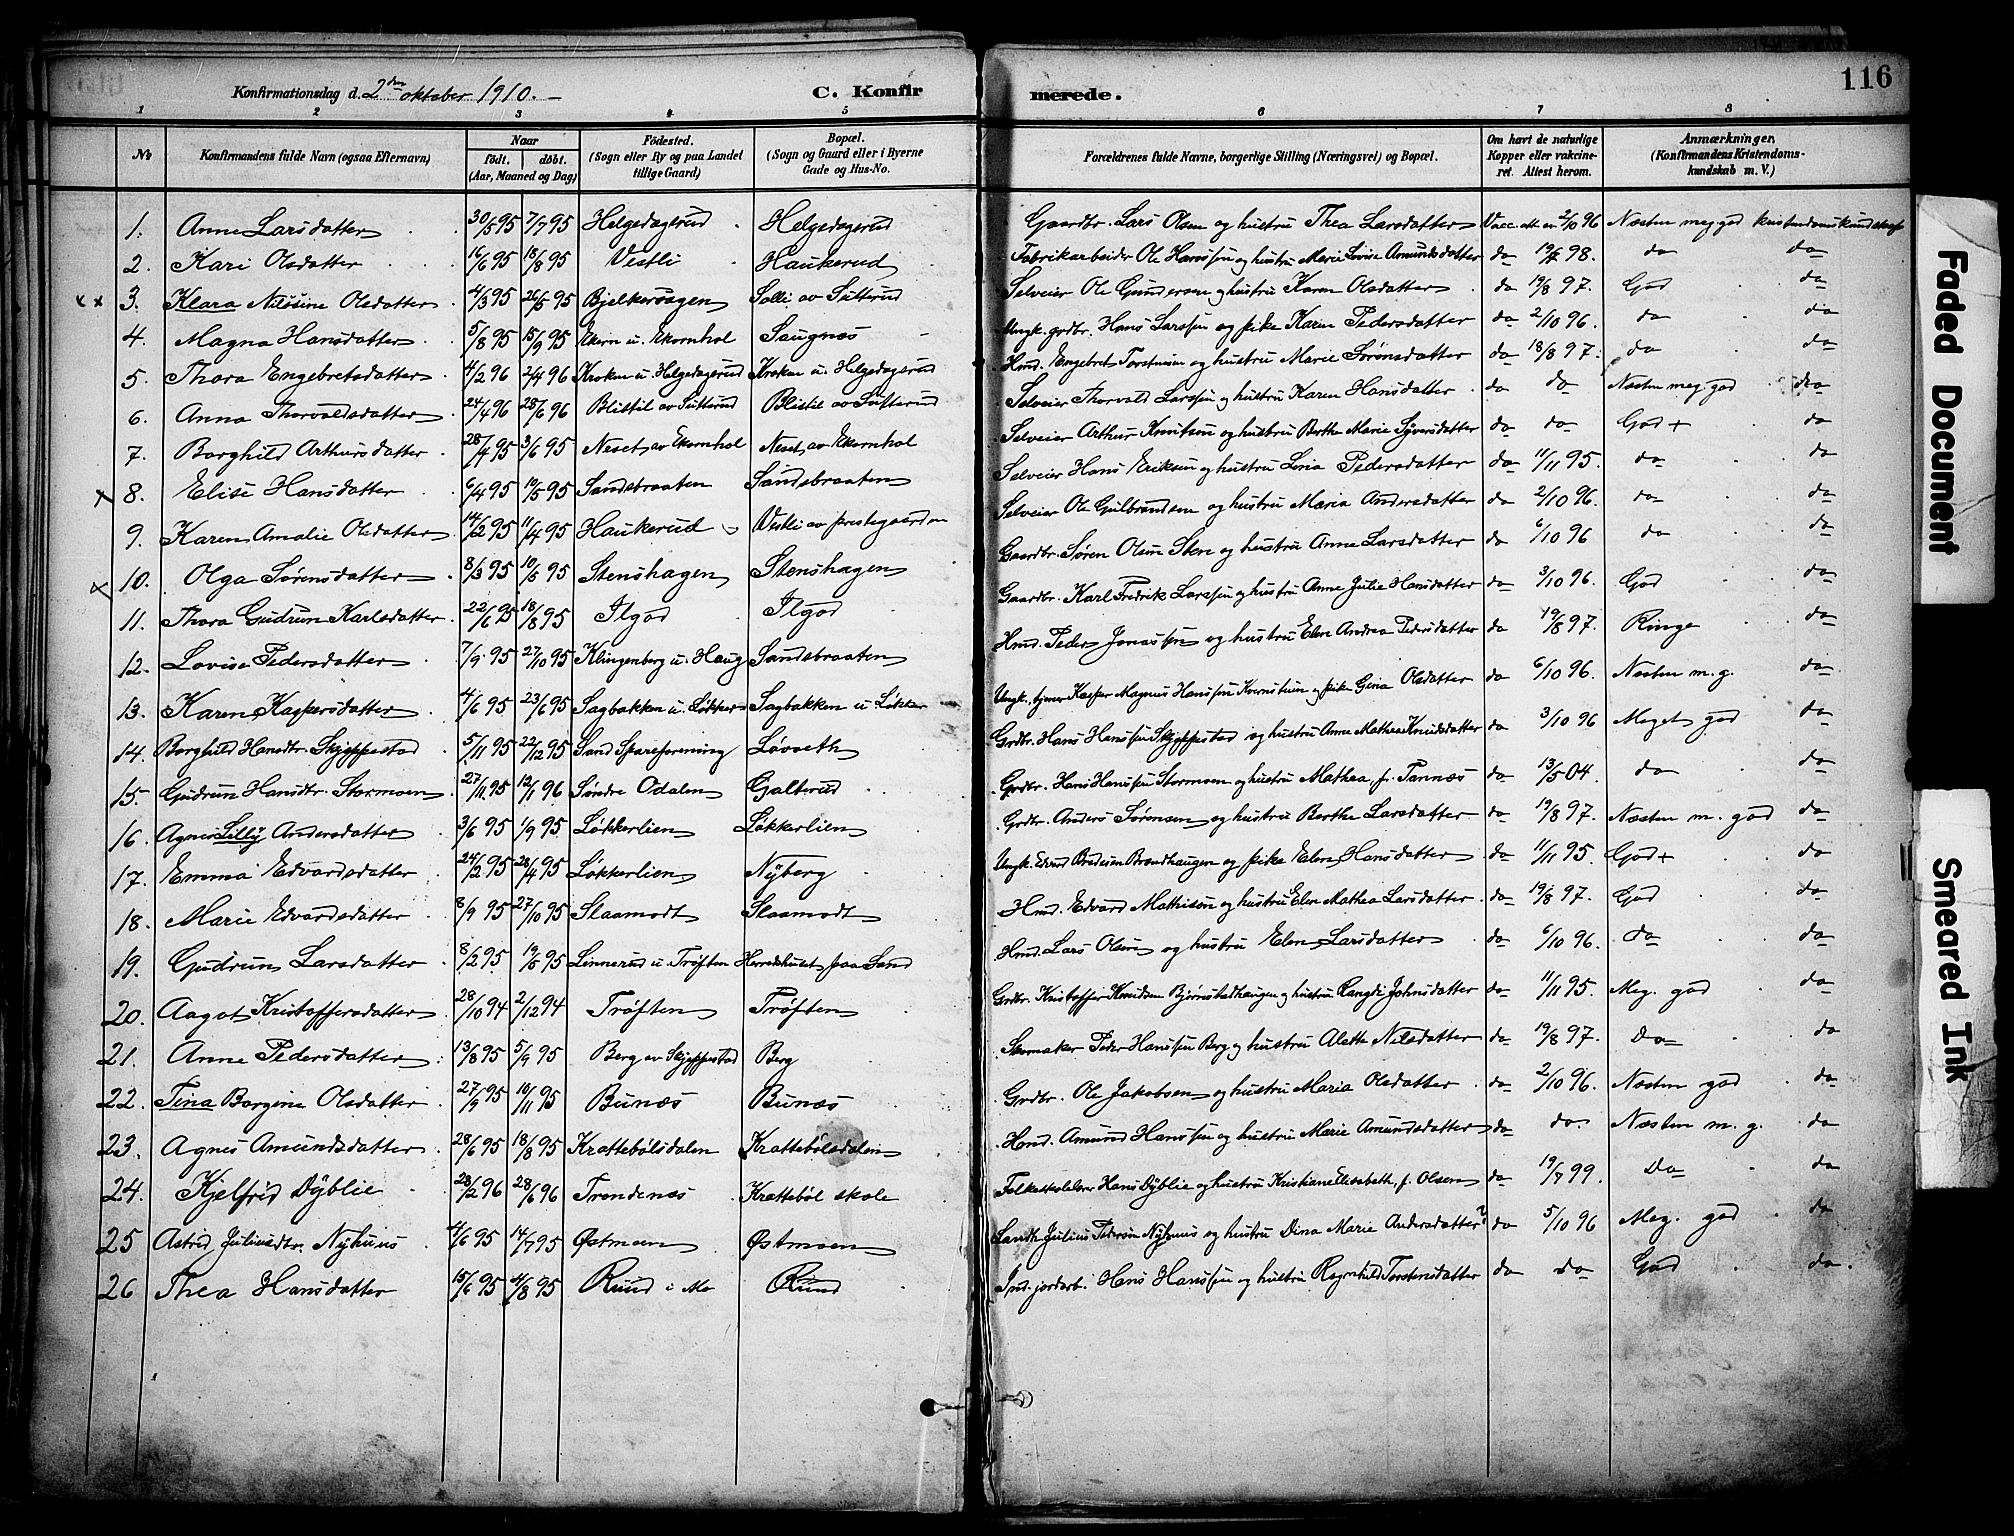 116
Konfirmationsdag d. 2den oktober 1910. C. Konfirmerede.
1 2 3 4 5 6 7 8
No Konfirmandens fulde Navn (ogsaa Efternavn) Naar født, døbt. (Aar, Maaned og Dag) Fødested. (Sogn eller By og paa Landet tillige Gaard) Bopæl. (Sogn og Gaard eller i Byerne Gade og Hus-No. Forældrenes fulde Navne, borgerlige Stilling (Næringsvei) og Bopæl. Om havt de naturlige Kopper eller vakcineret. Attest herom. Anmærkninger. (Konfirmandens Kristendomskundskab m. V.)
1. Anne Larsdatter 30/5 95 7/7 95 Helgedagsrud Helgedagsrud Gaardbr. Lars Olsen og hustru Thea Larsdatter Vacc. att en 2/10 96 Næsten meg. god kristendomskundskap
2. Kari Olsdatter 16/6 95 18/8 95 Vestli Haukerud Fabrikarbeider Ole Hanssen og hustru Marie Lovise Amundsdatter do 19/7 98. do do
xx 3. Klara Nilsine Olsdatter 4/3 95 26/5 95 Bjelkersagen Solli av Sutterud Selveier Ole Gundersen og hustru Karen Olsdatter do 19/8 97. God do
4. Magna Hansdatter 5/8 95 15/9 95 Ekern u. Ekornhol Saugnæs Ungk. grdbr. Hans Larssen og pike Karen Pedersdatter do 2/10 96. do do
5. Thora Engebretsdatter 4/2 96 2/4 96 Kroken u. Helgedagsrud Kroken u. Helgedagsrud Hmd. Engebret Torstensen og hustru Marie Sørensdatter do 18/8 97. do do
6. Anna Thorvaldsdatter 24/4 96 28/6 96 Blistil av Sutterud Blistil av Sutterud Selveier Thorvald Larssen og hustru Karen Hansdatter do do Næsten meg. god do
7. Borghild Arthursdatter 28/4 95 3/6 95 Neset av Ekornhol Neset av Ekornhol Selveier Arthur Knutsen og hustru Berthe Marie Syversdatter do do God + do
x 8. Elise Hansdatter 6/4 95 19/5 95 Sandsbraaten Sandsbraaten Selveier Hans Eriksen og hustru Lovia Pedersdatter do 11/11 95. do do
9. Karen Amalie Olsdatter 14/2 95 11/4 95 Haukerud Vestli av prestegaarden Selveier Ole Gulbrandsen og hustru Maria Andersdatter do 2/10 96. do do
x 10. Olga Sørensdatter 8/3 95 10/5 95 Stenshagen Stenshagen Gaardbr. Søren Olsen Sten og hustru Anne Larsdatter do 6/10 96 do do
11. Thora Gudrun Karlsdatter 22/6 95 18/8 95 Ilgod Ilgod Gaardbr. Karl Fredrik Larssen og hustru Anne Julie Hansdatter do 3/10 96. God do
12. Lovise Pedersdatter 7/9 95 27/10 95 Klingenberg u. Haug Sandsbraaten Hmd. Peder Jonassen og hustru Elen Andrea Pedersdatter do 19/8 97. Ringe do
13. Karen Kaspersdatter 4/6 95 23/6 95 Sagbakken u. Løkker Sagbakken u Løkker Ungk. tjener Kasper Magnus Hanssen Kvernstuen og pike Gina Olsdatter do 6/10 96. Næsten m. g. do
14. Borghild Hansdtr. Skjeppestad 5/11 95 22/12 95 Sand Spareforening Løvseth Grdbr. Hans Hanssen Skjeppestad og hustru Anne Mathea Knudsdatter do 3/10 96 Meget god do
15. Gudrun Hansdtr. Stormoen 27/11 95 12/1 96 Søndre Odalen Galterud Grdbr. Hans Hanssen Stormoen og hustru Mathea, f. Tannæs do 13/5 04. do do
16. Agnes Lilly Andersdatter 3/6 95 1/9 95 Løkkerlien Løkkerlien Grdbr. Anders Sørensen og hustru Berthe Larsdatter do 19/8 97. Næsten m. god do
17. Emma Edvardsdatter 24/2 95 28/4 95 Løkkerlien Nyberg Ungk. Edvard Bredesen Brændhaugen og pike Elen Hansdatter do 11/11 95. God + do
18. Marie Edvardsdatter 8/9 95 27/10 95 Slaamodt Slaamodt Hmd. Edvard Mathisen og hustru Elen Mathea Larsdatter do 19/8 97. God do
19. Gudrun Larsdatter 8/2 95 19/5 95 Linnerud u. Trøften Herredshuset paa Sand Hmd. Lars Olsen og hustru Elen Larsdatter do 6/10 96. do do
20. Aagot Kristoffersdatter 28/10 94 2/12 94 Trøften Trøften Grdbr. Kristoffer Knudsen Bjørnstadhaugen og hustru Rangdi Johnsdatter do 11/11 95. Meg. god do
21. Anne Pedersdatter 13/8 95 5/9 95 Berg av Skjeppestad Berg Skomaker Peder Hanssen Berg og hustru Alette Nilsdatter do 19/8 97. Do do
22. Tina Bergine Olsdatter 27/9 95 10/11 95 Bunæs Bunæs Grdbr. Ole Jakobsen og hustru Maria Olsdatter do 2/10 96. Næsten god do
23. Agnes Amundsdatter 28/6 95 18/8 95 Krattebølsdalen Krattebølsdalen Hmd. Amund Hanssen og hustru Marie Amundsdatter do do Næsten m. g. do
24. Kjelfrid Dyblie 28/2 96 28/6 96 Trondenæs Krattebøl skole Folkeskolelærer Hans Dyblie og hustru Kristiane Elisabeth, f. Olsen do 19/7 99. Do do
25 Astrid Juliusdtr. Nyhuus 4/6 95 14/7 95 Østmoen Østmoen Landh. Julius Pedersen Nyhuus og hustru Dina Marie Andersdatter? do 5/10 96 Meg. god do
26 Thea Hansdatter 15/6 95 4/8 95 Ruud i Mo Ruud Ind. jordarb. Hans Hanssen og hustru Ragnhild Torstensdatter do do God do.
Faded Document
Smeared Ink